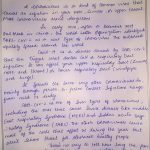 A coronavirus is a kind of common virus that
causes an infection in your nose, sinuses or upper throat.
Most coronaviruses aren't dangerous.
In early 2020, after a December 2019
outbreak in China, the World Health Organization identified
SARS-CoV-2 as a new type of coronavirus. The outbreak
quickly spread around the world.
COVID-19 is a disease caused by SARS-CoV-2
that can trigger what doctors call a respiratory tract
infection. It can affect your upper respiratory tract (sinuses,
nose and throat) or lower respiratory tract (windpipe and
lungs).
It spreads the same way other coronaviruses do,
mainly through person to person contact. Infections range
from mild to deadly.
SARS-CoV-2 is one of seven types of coronavirus,
including the ones that cause severe diseases like Middle
East respiratory syndrome (MERS) and sudden acute
respiratory syndrome (SARS). The other coronaviruses cause
most of the colds that affect us during the year but
aren't a serious threat for otherwise healthy people.
There no way to tell how long the